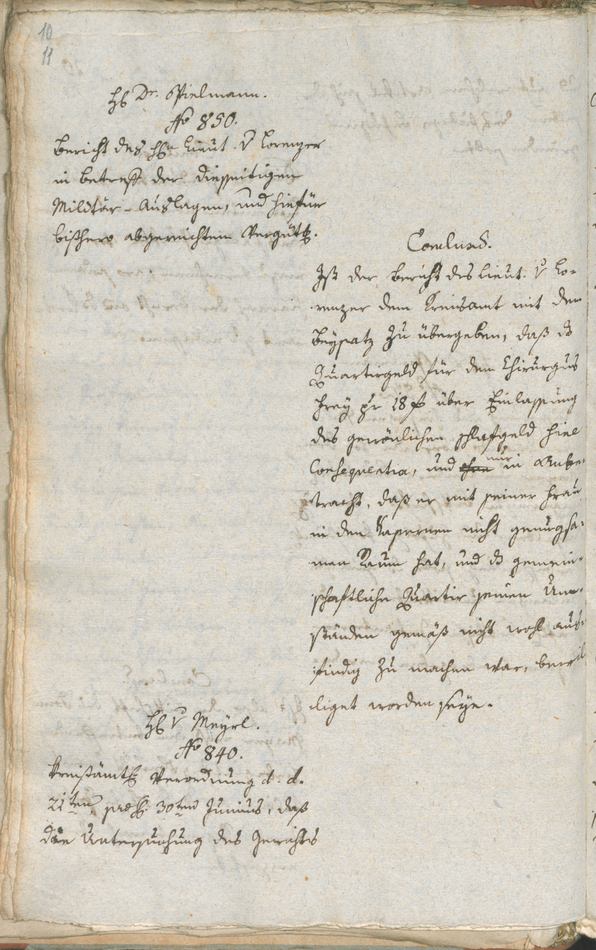 10
11
H: Dr. Spielmann.
No 850.
Bericht des H: Lieut. v Lorenzer
in betreff der diesseitigen
Militär-Auslagen, und hiefür
bishero abgereichten Vergüt:
Conclus.
Ist der Bericht des Lieut. v Lo-
renzer dem Kreisamt mit dem
Beysatz zu übergeben, daß das
Quartiergeld für dem Chirurgus
Frey pr 18 f über Einlassung
des gewöhnlichen Schlafgeld sine
Consequentia, und nur in Anbe-
tracht, daß er mit seiner Frau
in den Kasernen nicht genugsa-
men Raum hat, und das gemein-
schaftliche Quartir seinen Um-
ständen gemäß nicht wohl aus-
findig zu machen war, bewil
liget worden seye.
H: v Meyrl.
No 840.
Kreisämtl: Verordnung d. d.
21ten, praes: 30ten Junius, daß
die Untersuchung des Gerichts